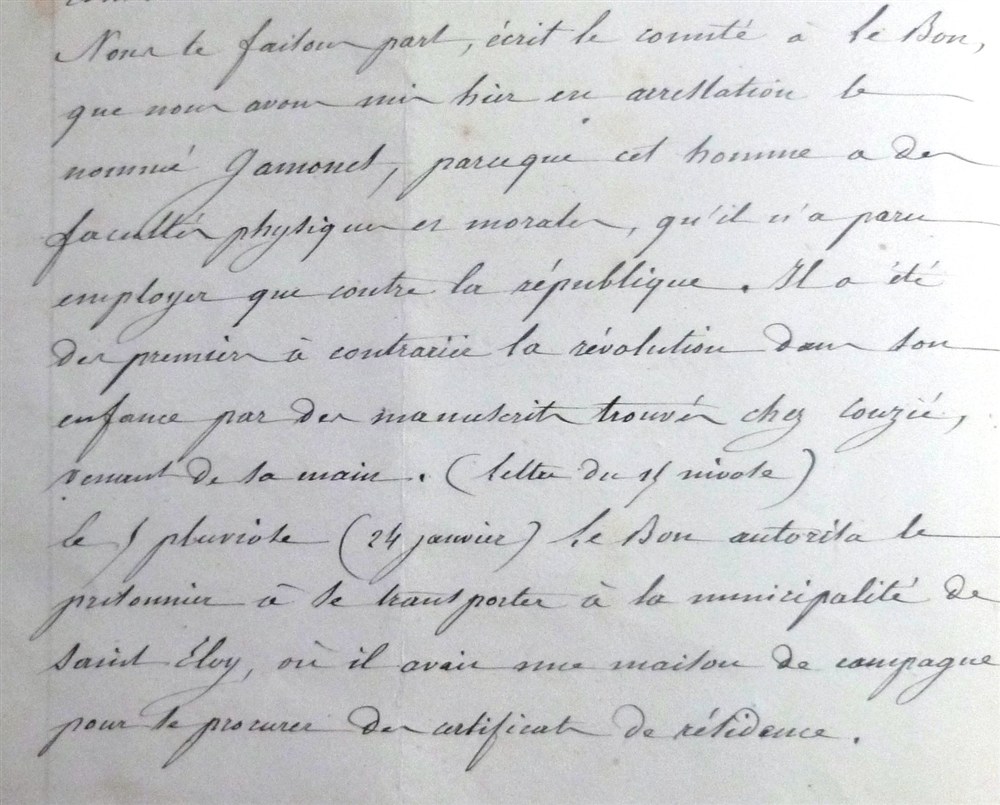 Nous te faisons part, écrit le comité à le Bon,
que nous avons mis hier en arrestation le
nommé Gamonet, parceque cet homme a des
facultés physiques et morales, qu'il n'a paru
employer que contre la république. Il a été
des premiers à contrarier la révolution dans son
enfance par des manuscrits trouvés chez Couzié,
venant de sa main. (lettre du 15 nivose)
le 5 pluviose (24 janvier) le Bon autorisa le
prisonnier à se transporter à la municipalité de
Saint Eloy, où il avait une maison de campagne
pour se procurer des certificats de résidence.